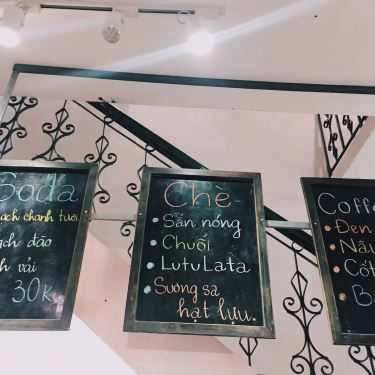 Soda
ạch chanh tươi
ạch đào
h vải
30k
Chè
Sắn nóng
Chuối
LuTuLaTa
Sương sa
hạt lựu.
Coff
Đen
Nâu
Cốt
B